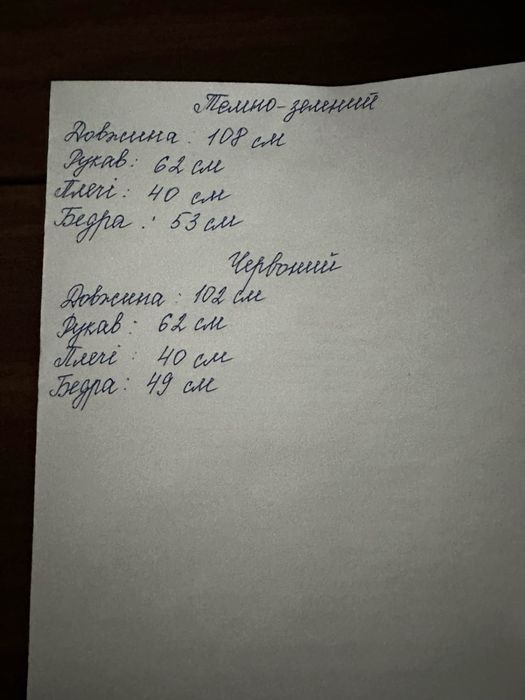 Темно-зелений
Довжина: 108 см
Рукав: 62 см
Плечі: 40 см
Бедра: 53 см
Червоний
Довжина: 102 см
Рукав: 62 см
Плечі: 40 см
Бедра: 49 см